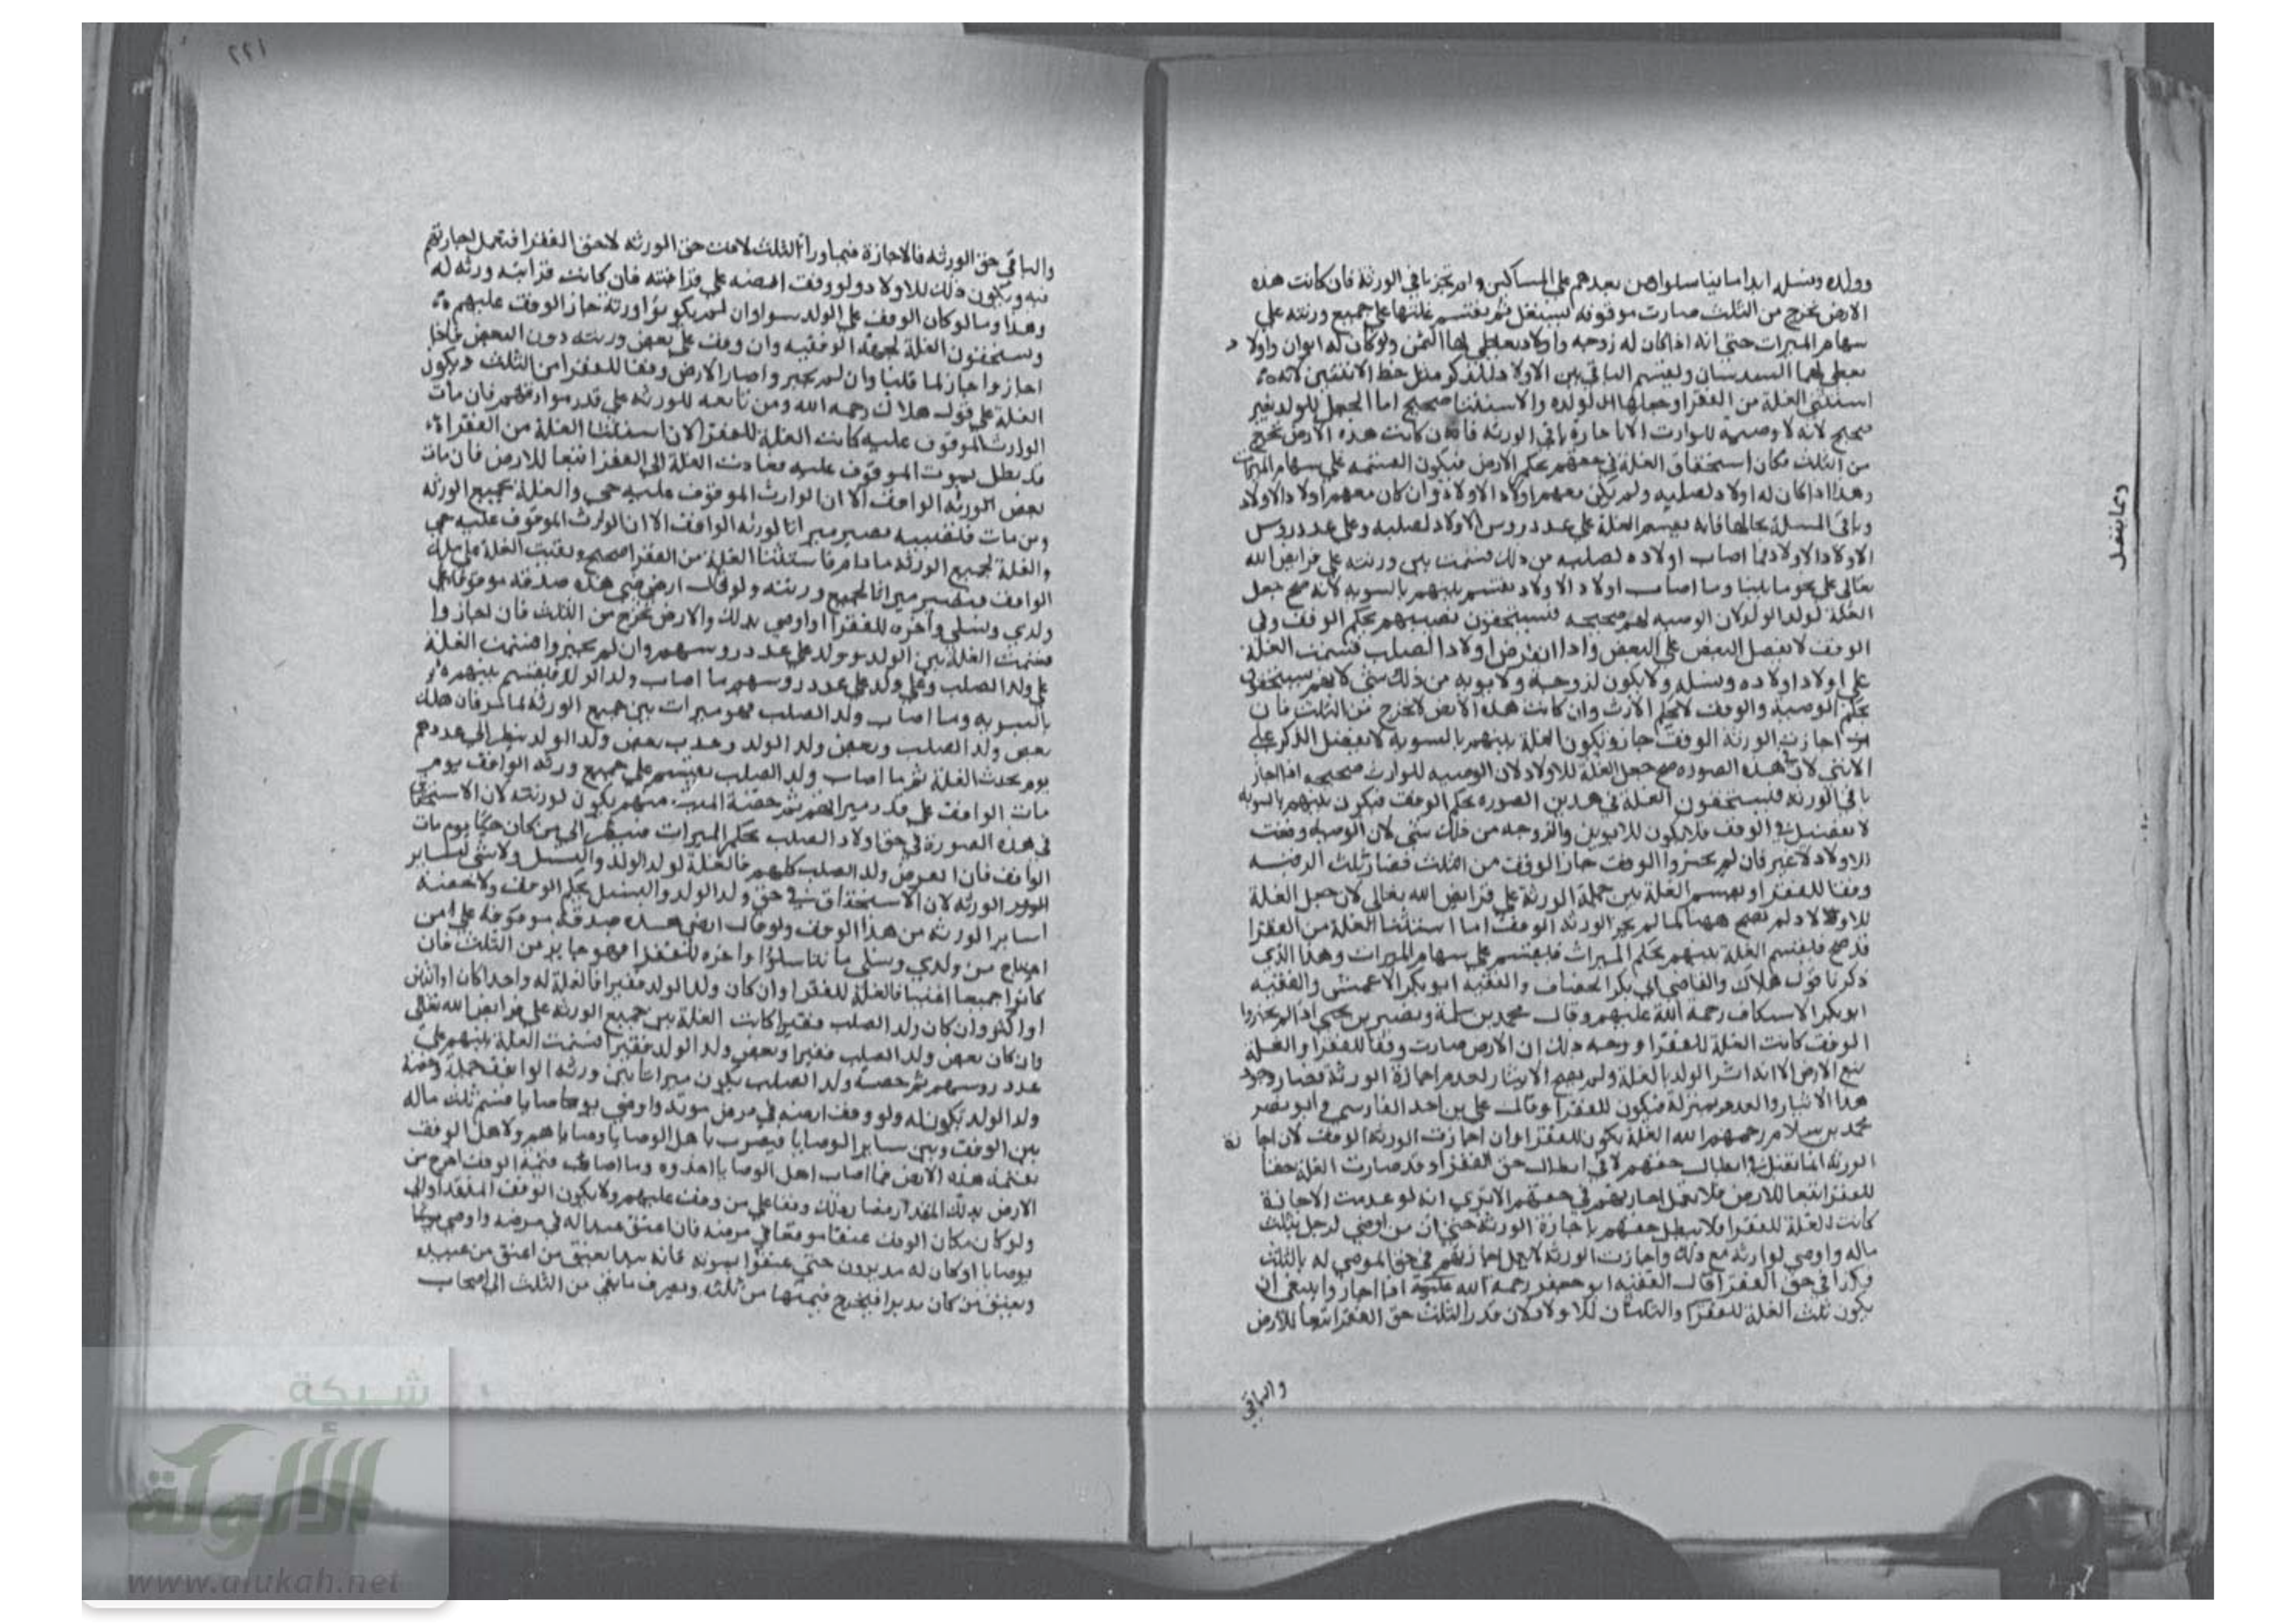 وولده ونسله ابدا ما تناسلوا ومن بعدهم على المساكين ولم تجز باقي الورثة فان كانت هذه
الارض تخرج من الثلث صارت موقوفة تستغل ثم يقتسم غلتها على جميع ورثته على
سهام الميراث حتى انه اذا كان له زوجه واولاد يعطى لها الثمن ولو كان له ابوان واولاد
يعطى لهما السدسان ويقسم الباقي بين الاولاد للذكر مثل حظ الانثيين لانه
استثنى الغلة من الفقرا وجعلها لولده والاستثنا صحيح اما الجعل للولد فغير
صحيح لانه لا وصية للوارث الا باجازة باقي الورثه فان كانت هذه الارض تخرج
من الثلث فكان استحقاق الغلة في حقهم بحكم الارض فيكون القسمة على سهام الميراث
وهذا اذا كان له اولاد لصلبه ولم يكن معهم اولاد الاولاد وان كان معهم اولاد الاولاد
وباقي المسلة بحالها فانه يقسم الغلة على عدد روس الاولاد لصلبه وعلى عدد روس
الاولاد الاولاد فما اصاب اولاده لصلبه من ذلك قسمت بين ورثته على فرايض الله
تعالى على نحو ما بينا وما اصاب اولاد الاولاد يقتسم بينهم بالسويه لانه صح جعل
الغلة لولد الولد لان الوصية لهم صحيحه فيستحقون نصيبهم بحكم الوقف وفي
الوقف لا يفضل البعض على البعض واذا انقرض اولاد الصلب قسمت الغلة
على اولاد اولاده ونسله ولا يكون لزوجه ولابويه من ذلك شى لانهم يستحقون
بحكم الوصية والوقف لا بحكم الارث وان كانت هذه الارض لا تخرج من الثلث فان
اجازت الورثة الوقف جاز ويكون الغلة بينهم بالسوية لا يفضل الذكر على
الانثى لان في هذه الصوره صح جعل الغلة للاولاد لان الوصيه للوارث صحيحه اذا اجاز
باقي الورثه فيستحقون الغلة في هذين الصوره بحكم الوقف فيكون بينهم بالسويه
لا تفضيل في الوقف فلا يكون للابوين والزوجه من ذلك شى لان الوصية وقعت
للاولاد لا غير فان لم يجيزوا الوقف جاز الوقف من الثلث فصار ثلث الارض
وقفا للفقرا ويقسم الغلة بين جملة الورثة على فرايض الله تعالى لان جعل الغلة
للاولاد لم تصح ههنا لما لم يجز الورثه الوقف اما استثنا الغلة من الفقرا
قد صح فيقتسم الغلة بينهم بحكم الميراث فيقتسم على سهام الميراث وهذا الذي
ذكرنا قول هلال والقاضي ابي بكر الخصاف والفقيه ابو بكر الاعمش والفقيه
ابو بكر الاسكاف رحمة الله عليهم وقال محمد بن سلمة ونصير بن يحيى اذا لم يجيزوا
الوقف كانت الغلة للفقرا ووجه ذلك ان الارض صارت وقفا للفقرا والغلة
تبع الارض الا انه اثر الولد بالغلة ولم يصح الايثار لعدم اجازة الورثة فصار وجود
هذا الايثار والعدم بمنزلة فيكون للفقرا وقال علي بن احمد الفارسي وابو نصر
محمد بن سلام رحمهم الله الغلة يكون للفقرا وان اجازت الورثه الوقف لان اجازة
الورثه انما تقبل في ابطال حقهم لا في ابطال حق الفقرا وقد صارت الغلة حقا
للفقرا تبعا للارض فلا تعمل اجازتهم في حقهم الا ترى انه لو عدمت الاجازة
كانت الغلة للفقرا فلا يبطل حقهم باجازة الورثة حتى ان من اوصى لرجل بثلث
ماله واوصى لوارثه مع ذلك واجازت الورثه لا يعمل اجازتهم في حق الموصى له بالثلث
فكذا في حق الفقرا قال الفقيه ابو جعفر رحمة الله عليه اذا اجازوا ينبغي ان
يكون ثلث الغلة للفقرا والثلثان للاولاد لان قدر الثلث حق الفقرا تبعا للارض
والباقي
وما يتصل
٢٢١
والباقي حق الورثه فالاجازة فيما ورا الثلث لاقت حق الورثه لا حق الفقرا فتعمل اجازتهم
فيه ويكون ذلك للاولاد ولو وقف ارضه على قرابته فان كانت قرابته ورثه له
وهذا وما لو كان الوقف على الولد سوا وان لم يكونوا ورثته جاز الوقف عليهم
ويستحقون الغلة بجهة الوقفيه وان وقف على بعض ورثته دون البعض فان
اجازوا جاز لما قلنا وان لم يجيزوا صار الارض وقفا للفقرا من الثلث ويكون
الغلة على قول هلال رحمه الله ومن تابعه للورثه على قدر مواريثهم فان مات
الوارث الموقوف عليه كانت الغلة للفقرا لان استثنا الغلة من الفقرا
قد بطل بموت الموقوف عليه فعادت الغلة الى الفقرا تبعا للارض فان مات
بعض الورثه الواقف الا ان الوارث الموقوف عليه حي والغلة لجميع الورثه
ومن مات فنصيبه يصير ميراثا لورثه الواقف الا ان الوارث الموقوف عليه حي
والغلة لجميع الورثه ما دام فاستثنا الغلة من الفقرا صحيح وبقيت الغلة على ملك
الواقف فيصير ميراثا لجميع ورثته ولو قال ارضي هذه صدقة موقوفة على
ولدي ونسلي واخره للفقرا او اوصي بذلك والارض تخرج من الثلث فان اجازوا
قسمت الغلة بين الولد وولد على عدد روسهم وان لم يجيزوا قسمت الغلة
على ولد الصلب وعلى ولد على عدد روسهم ما اصاب ولد الولد فيقسم بينهم
بالسويه وما اصاب ولد الصلب فهو ميراث بين جميع الورثة لما مر فان هلك
بعض ولد الصلب وبعض ولد الولد وحدث بعض ولد الولد ينظر الى عددهم
يوم يحدث الغلة ثم ما اصاب ولد الصلب يقسم على جميع ورثه الواقف يوم
مات الواقف على قدر ميراثهم ثم حصة الميت منهم يكون لورثته لان الاستحقاق
في هذه الصورة في حق اولاد الصلب بحكم الميراث فينظر الى من كان حيا يوم مات
الواقف فان انقرض ولد الصلب كلهم فالغلة لولد الولد والنسل ولا شى لساير
الورثه لان الاستحقاق في حق ولد الولد والنسل بحكم الوقف ولا حصة
لساير الورثه من هذا الوقف ولو قال ارضي هذه صدقة موقوفه على من
احتاج من ولدي ونسلي ما تناسلوا واخره للفقرا فهو جايز من الثلث فان
كانوا جميعا اغنيا فالغلة للفقرا وان كان ولد الولد فقيرا فالغلة له واحدا كان او اثنين
او اكثر وان كان ولد الصلب فقيرا كانت الغلة بين جميع الورثه على فرايض الله تعالى
وان كان بعض ولد الصلب فقيرا وبعض ولد الولد فقيرا قسمت الغلة بينهم على
عدد روسهم ثم حصة ولد الصلب يكون ميراثا بين ورثه الواقف جملة وحصة
ولد الولد يكون له ولو وقف ارضه في مرض موته واوصى بوصايا قسم ثلث ماله
بين الوقف وبين ساير الوصايا فيضرب باهل الوصايا وصاياهم ولاهل الوقف
بقيمة هذه الارض فما اصاب اهل الوصايا اخذوه وما اصاب قيمة الوقف اخرج من
الارض بذلك المقدار فصار ذلك وقفا على من وقف عليهم ولا يكون الوقف المنفذ اولى
ولو كان مكان الوقف عتقا موقعا في مرضه فان اعتق عبدا له في مرضه واوصى
بوصايا او كان له مدبرون حتى عتقوا بموته فانه يبدا بعتق من اعتق من عبيده
وبعتق من كان مدبرا فيخرج قيمتها من ثلثه ويصرف ما بقي من الثلث الى اصحاب
شبكة
الألوكة
www.alukah.net